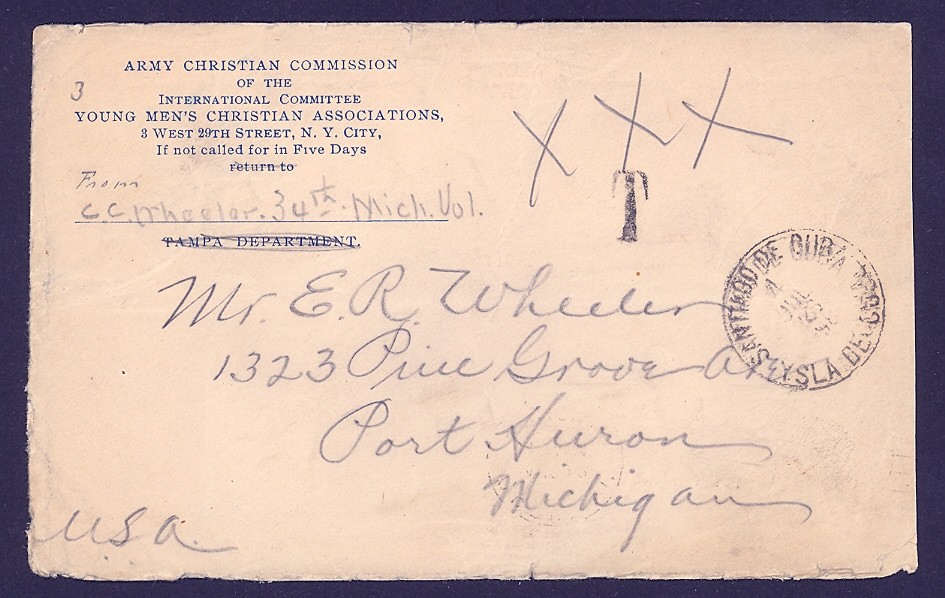 ARMY CHRISTIAN COMMISSION
OF THE
INTERNATIONAL COMMITTEE
YOUNG MEN'S CHRISTIAN ASSOCIATIONS,
3 WEST 29TH STREET, N. Y. CITY,
If not called for in Five Days
return to
3
From
C.C. Wheeler. 34th. Mich. Vol.
TAMPA DEPARTMENT.
XXX
T
SANTIAGO DE CUBA
ISLA DE
Mr. E. R. Wheeler
1323 Pine Grove Ave
Port Huron
Michigan
USA.